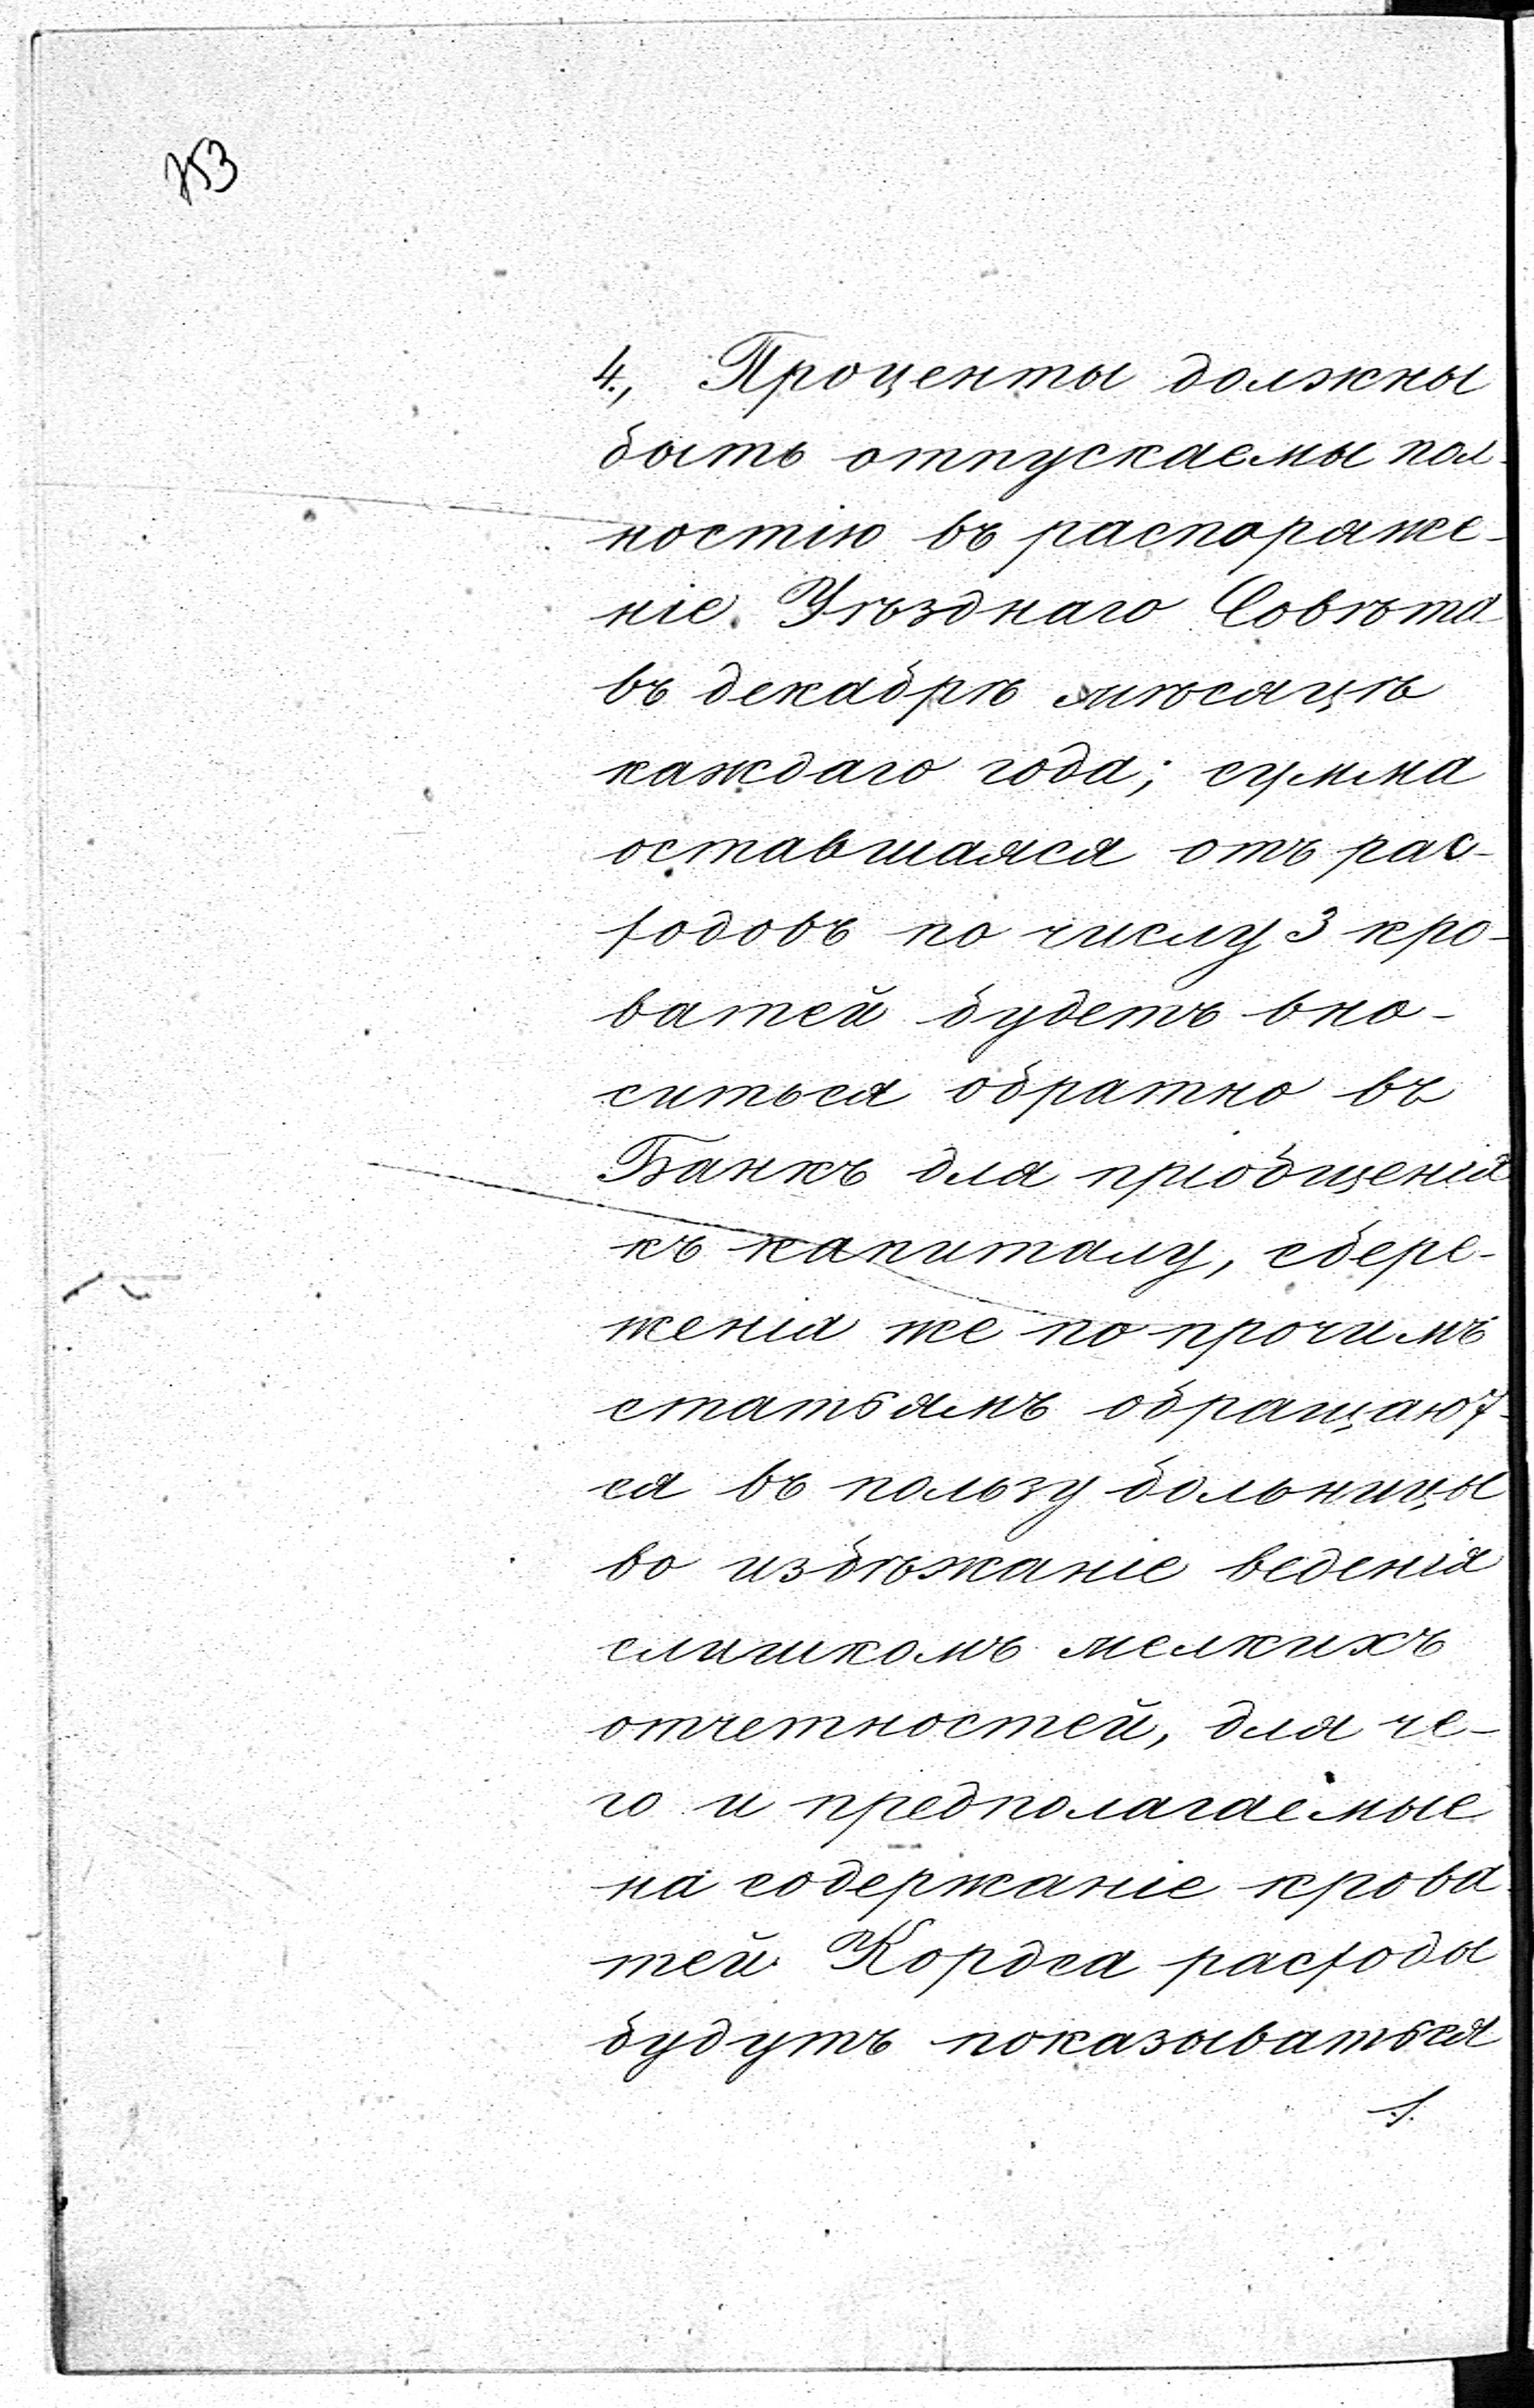 753
4., Проценты должны
быть отпускаемы пол-
ностію въ распоряже-
ніе Уѣзднаго Совѣта
въ декабрѣ мѣсяцѣ
каждаго года; сумма
оставшаяся отъ рас-
ходовъ по числу 3 кро-
ватей будетъ вно-
ситься обратно въ
Банкъ для пріобщенія
къ капиталу, сбере-
женія же по прочимъ
статьямъ обращают-
ся въ пользу больницы
во избѣжаніе веденія
слишкомъ мелкихъ
отчетностей, для че-
го и предполагаемые
на содержаніе крова-
тей Кордса расходы
будутъ показываться
./.